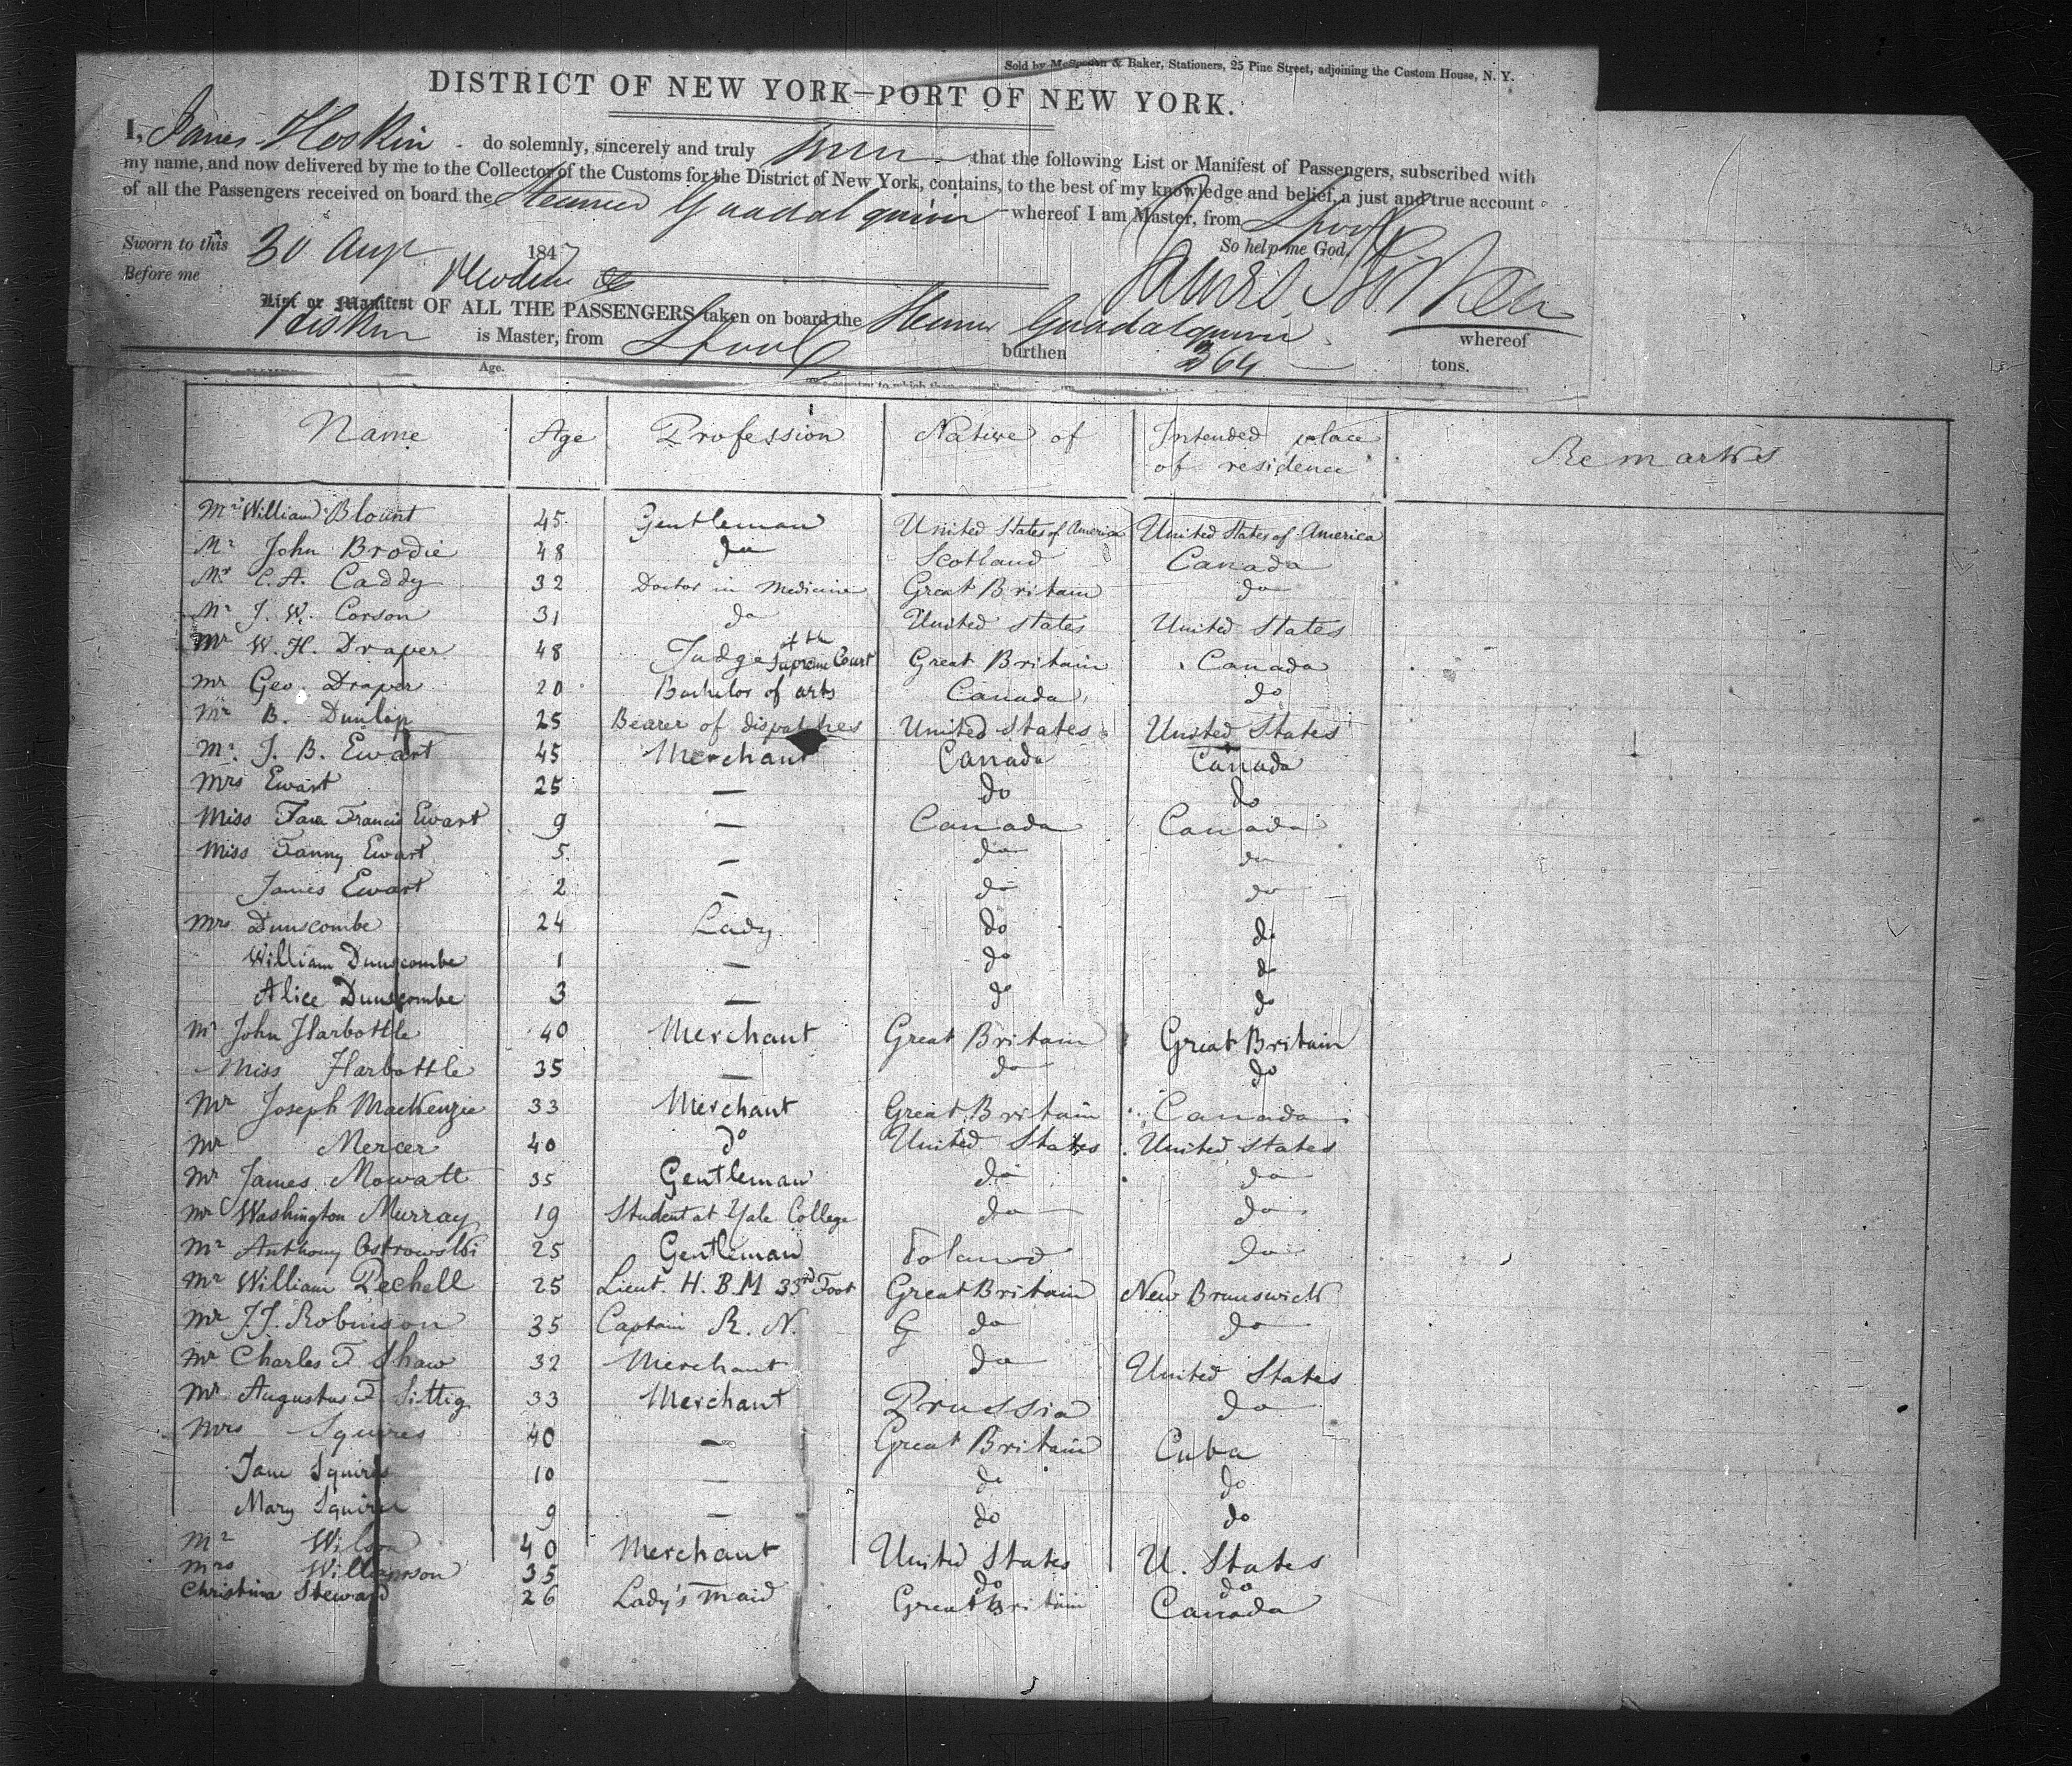 Sold by McSpedon & Baker, Stationers, 25 Pine Street, adjoining the Custom House, N. Y.
DISTRICT OF NEW YORK—PORT OF NEW YORK.
I, James Hoskin do solemnly, sincerely and truly that the following List or Manifest of Passengers, subscribed with
my name, and now delivered by me to the Collector of the Customs for the District of New York, contains, to the best of my knowledge and belief, a just and true account
of all the Passengers received on board the Steamer Guadalquivir whereof I am Master, from Lpool
Sworn to this 30 Aug 1847 So help me God.
Before me James Hosken
List or Manifest OF ALL THE PASSENGERS taken on board the Steamer Guadalquivir whereof
Hoskin is Master, from Lpool burthen 264 tons.
Age.
Name Age Profession Native of Intended place of residence Remarks
Mr William Blount 45 Gentleman United States of America United States of America
Mr John Brodie 48 do Scotland Canada
Mr C. A. Caddy 32 Doctor in Medicine Great Britain do
Mr J. W. Corson 31 do United States United States
Mr W. H. Draper 48 Judge of the Supreme Court Great Britain Canada
Mr Geo. Draper 20 Bachelor of arts Canada do
Mr B. Dunlop 25 Bearer of dispatches United States United States
Mr J. B. Ewart 45 Merchant Canada Canada
Mrs Ewart 25 — do do
Miss Jane Francis Ewart 9 — Canada Canada
Miss Fanny Ewart 5 — do do
James Ewart 2 — do do
Mrs Dunscombe 24 Lady do do
William Dunscombe 1 — do do
Alice Dunscombe 3 — do do
Mr John Harbottle 40 Merchant Great Britain Great Britain
Miss Harbottle 35 — do do
Mr Joseph MacKenzie 33 Merchant Great Britain Canada
Mr Mercer 40 do United States United States
Mr James Mowatt 35 Gentleman do do
Mr Washington Murray 19 Student at Yale College do do
Mr Anthony Ostrowski 25 Gentleman Poland do
Mr William Pechell 25 Lieut. H. B. M 33rd Foot Great Britain New Brunswick
Mr J. J. Robinson 35 Captain R. N. G do do
Mr Charles F. Shaw 32 Merchant do United States
Mr Augustus F. Sittig 33 Merchant Prussia do
Mrs Squires 40 — Great Britain Cuba
Jane Squires 10 — do do
Mary Squires 9 — do do
Mr Wilson 40 Merchant United States U. States
Mrs Williamson 35 do do
Christina Steward 26 Lady's maid Great Britain Canada